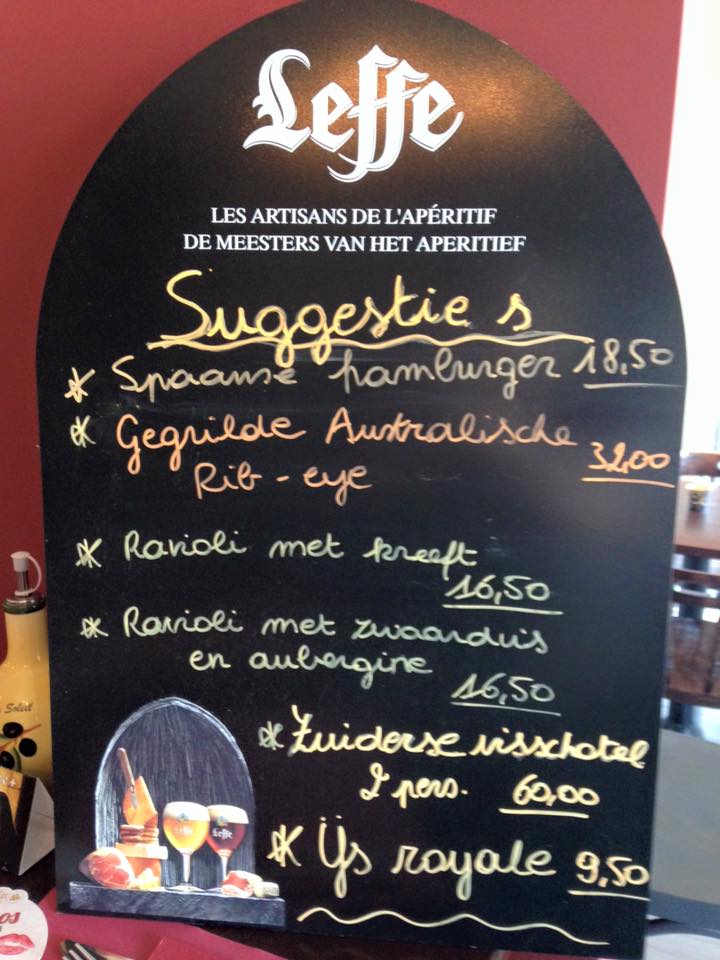 Leffe
LES ARTISANS DE L'APÉRITIF
DE MEESTERS VAN HET APERITIEF
Suggesties
* Spaanse hamburger 18,50
* Gegrilde Australische
Rib-eye 32,00
* Ravioli met kreeft
16,50
* Ravioli met zwaardvis
en aubergine
16,50
* Zuiderse visschotel
2 pers. 60,00
* Ijs royale 9,50
Leffe
Soleil